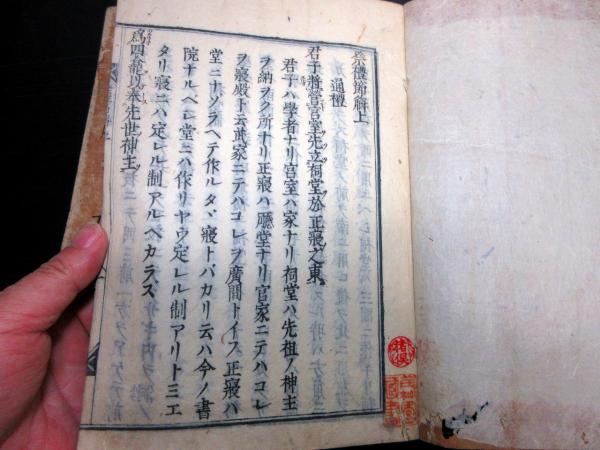 祭禮節解上
通禮
君子將營宮室先立祠堂於正寢之東
君子ハ學者ナリ宮室ハ家ナリ祠堂ハ先祖ノ神主
ヲ納ヲク所ナリ正寢ハ廳堂ナリ官家ニテハコレ
ヲ寢殿ト云武家ニテハコレヲ廣間トイフ正寢ハ
堂ニナゾラヘテ作ルタヾ寢トバカリ云ハ今ノ書
院ナルベシ堂ニハ作リヤウ定レル制アリトミエ
タリ寢ニハ定レル制アルベカラズ
爲四龕以奉先世神主